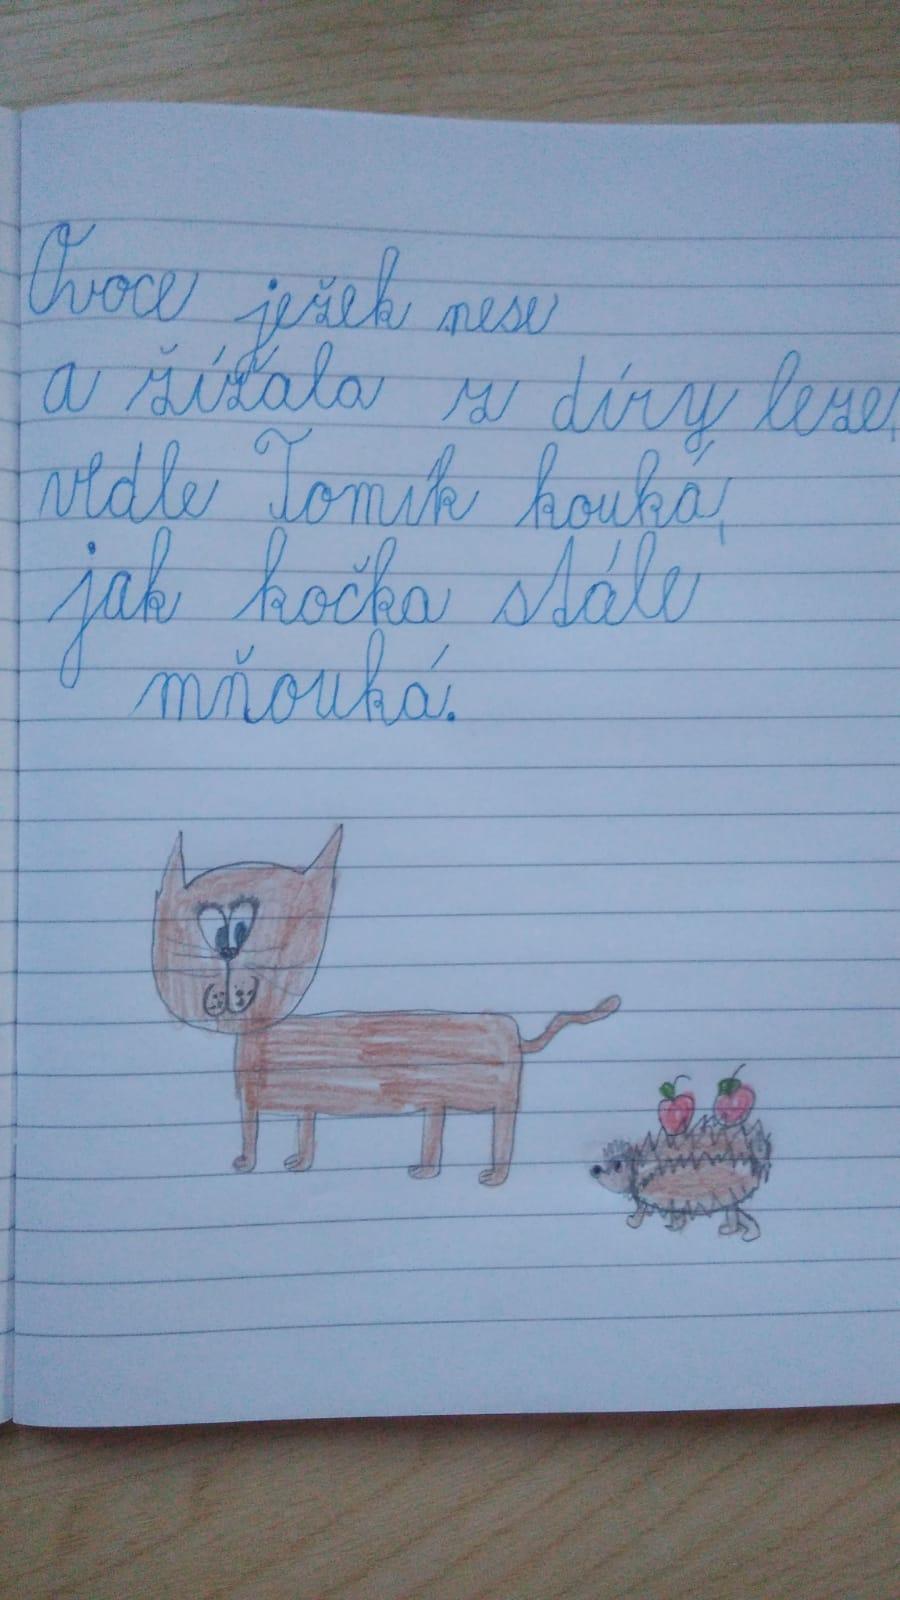 Ovoce ježek nese
a žížala z díry leze,
vedle Tomík kouká,
jak kočka stále
mňouká.